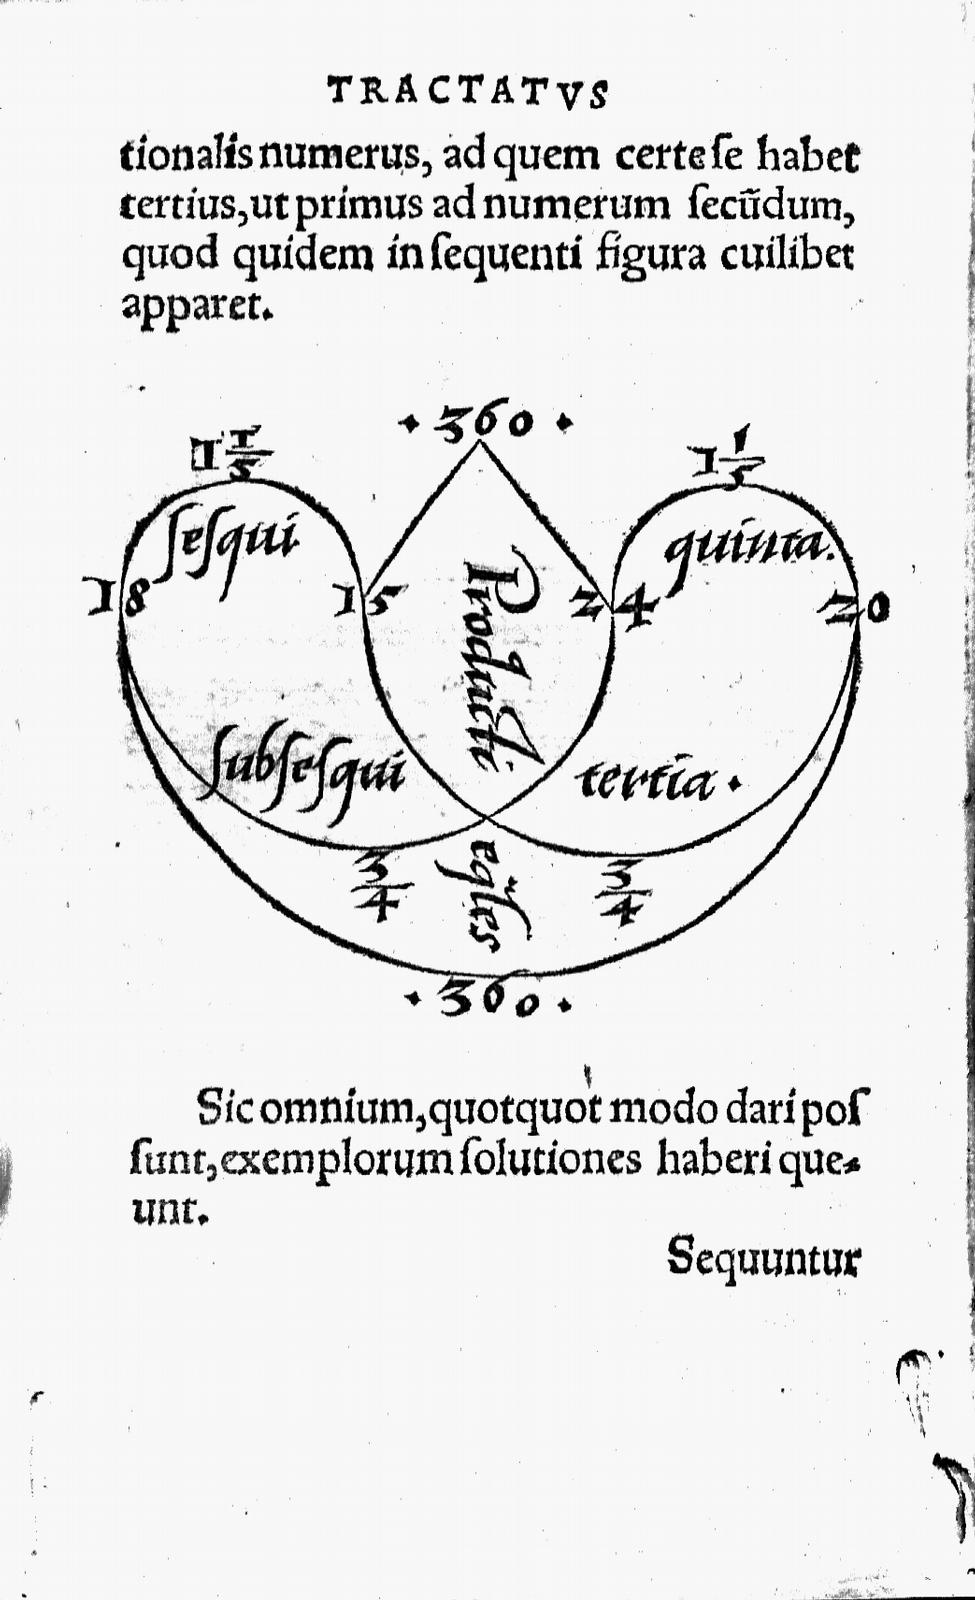 TRACTATVS
tionalis numerus, ad quem certe ſe habet
tertius, ut primus ad numerum ſecũdum,
quod quidem in ſequenti figura cuilibet
apparet.
· 360 ·
1 1/5
1 1/5
ſeſqui
quinta.
18
15
24
20
Producti
ſubſeſqui
tertia ·
3/4
3/4
· 360 ·
Sic omnium, quotquot modo dari poſ
ſunt, exemplorum ſolutiones haberi que⸗
unt.
Sequuntur